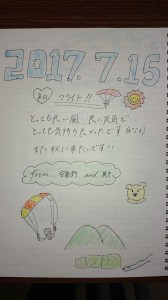 2017.7.15
初
フライト!!
とっても良い風、良い天気で
とっても気持ち良かったです
また秋に来たいです!!
from and